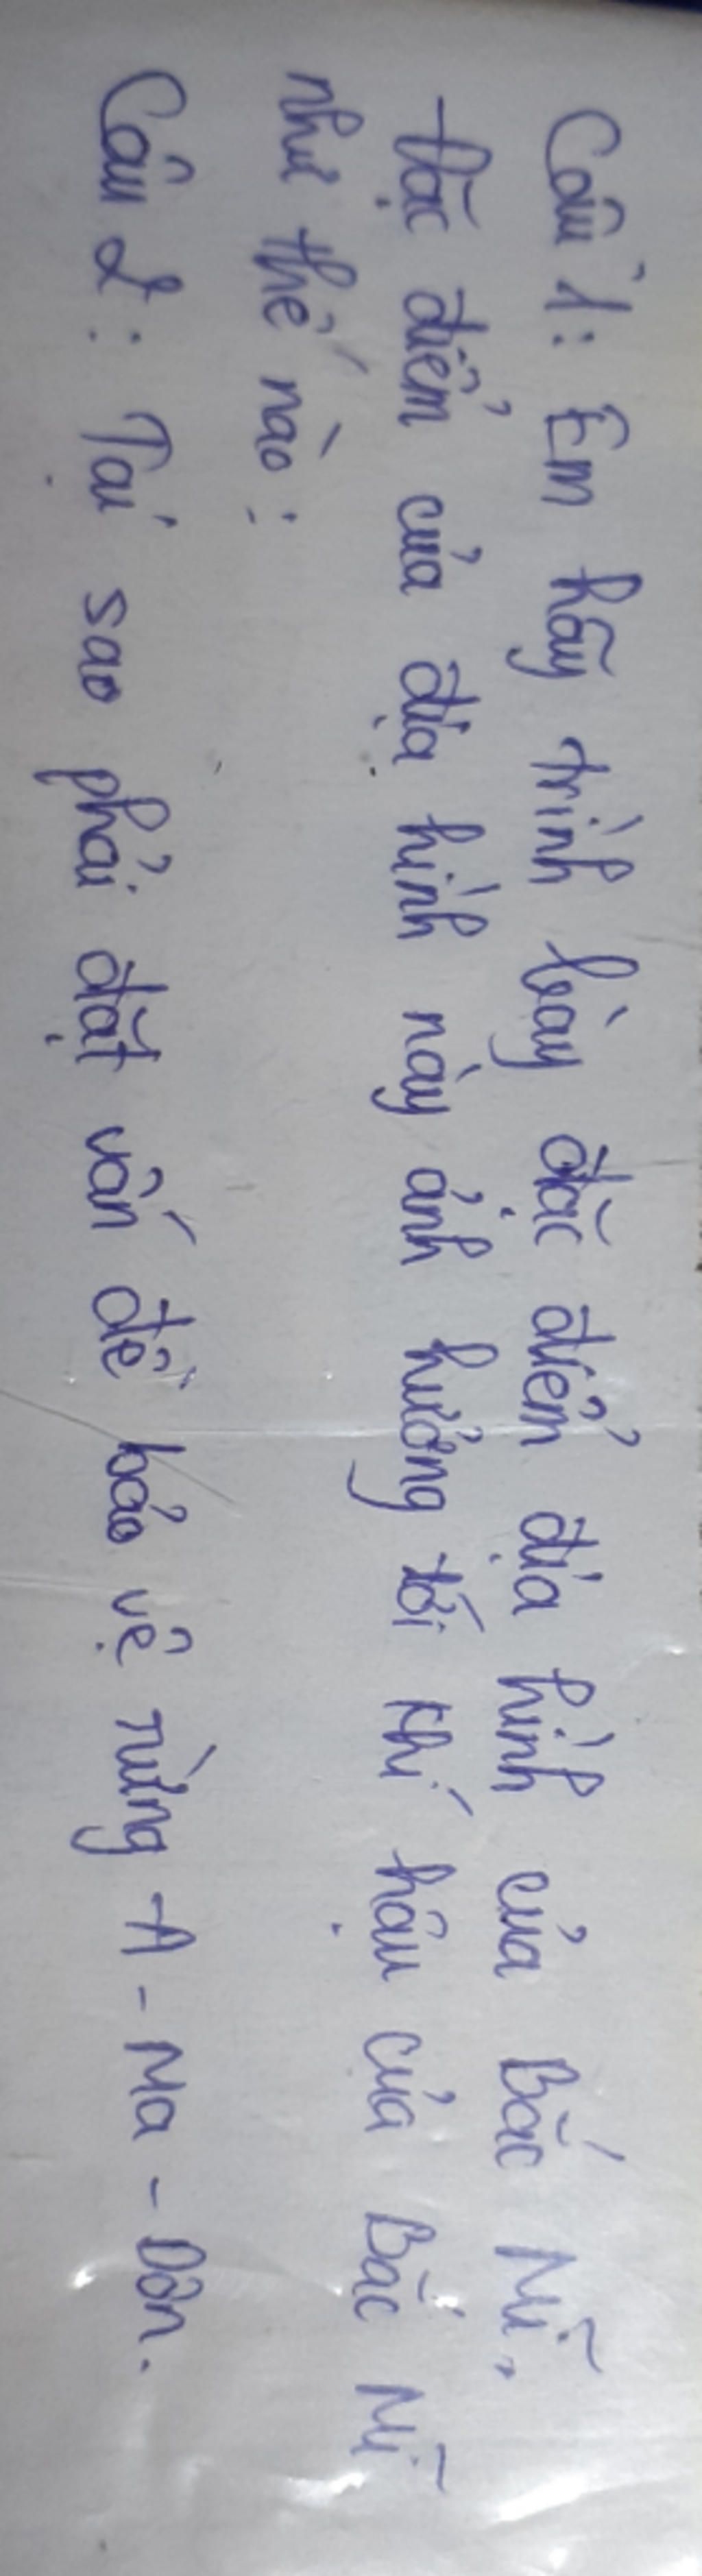 Câu 1: Em hãy trình bày đặc điểm địa hình của Bắc Mĩ,
Đặc điểm của địa hình này ảnh hưởng tới khí hậu của Bắc Mĩ
như thế nào:
Câu 2: Tại sao phải đặt vấn đề bảo vệ rừng A-Ma-Dôn.